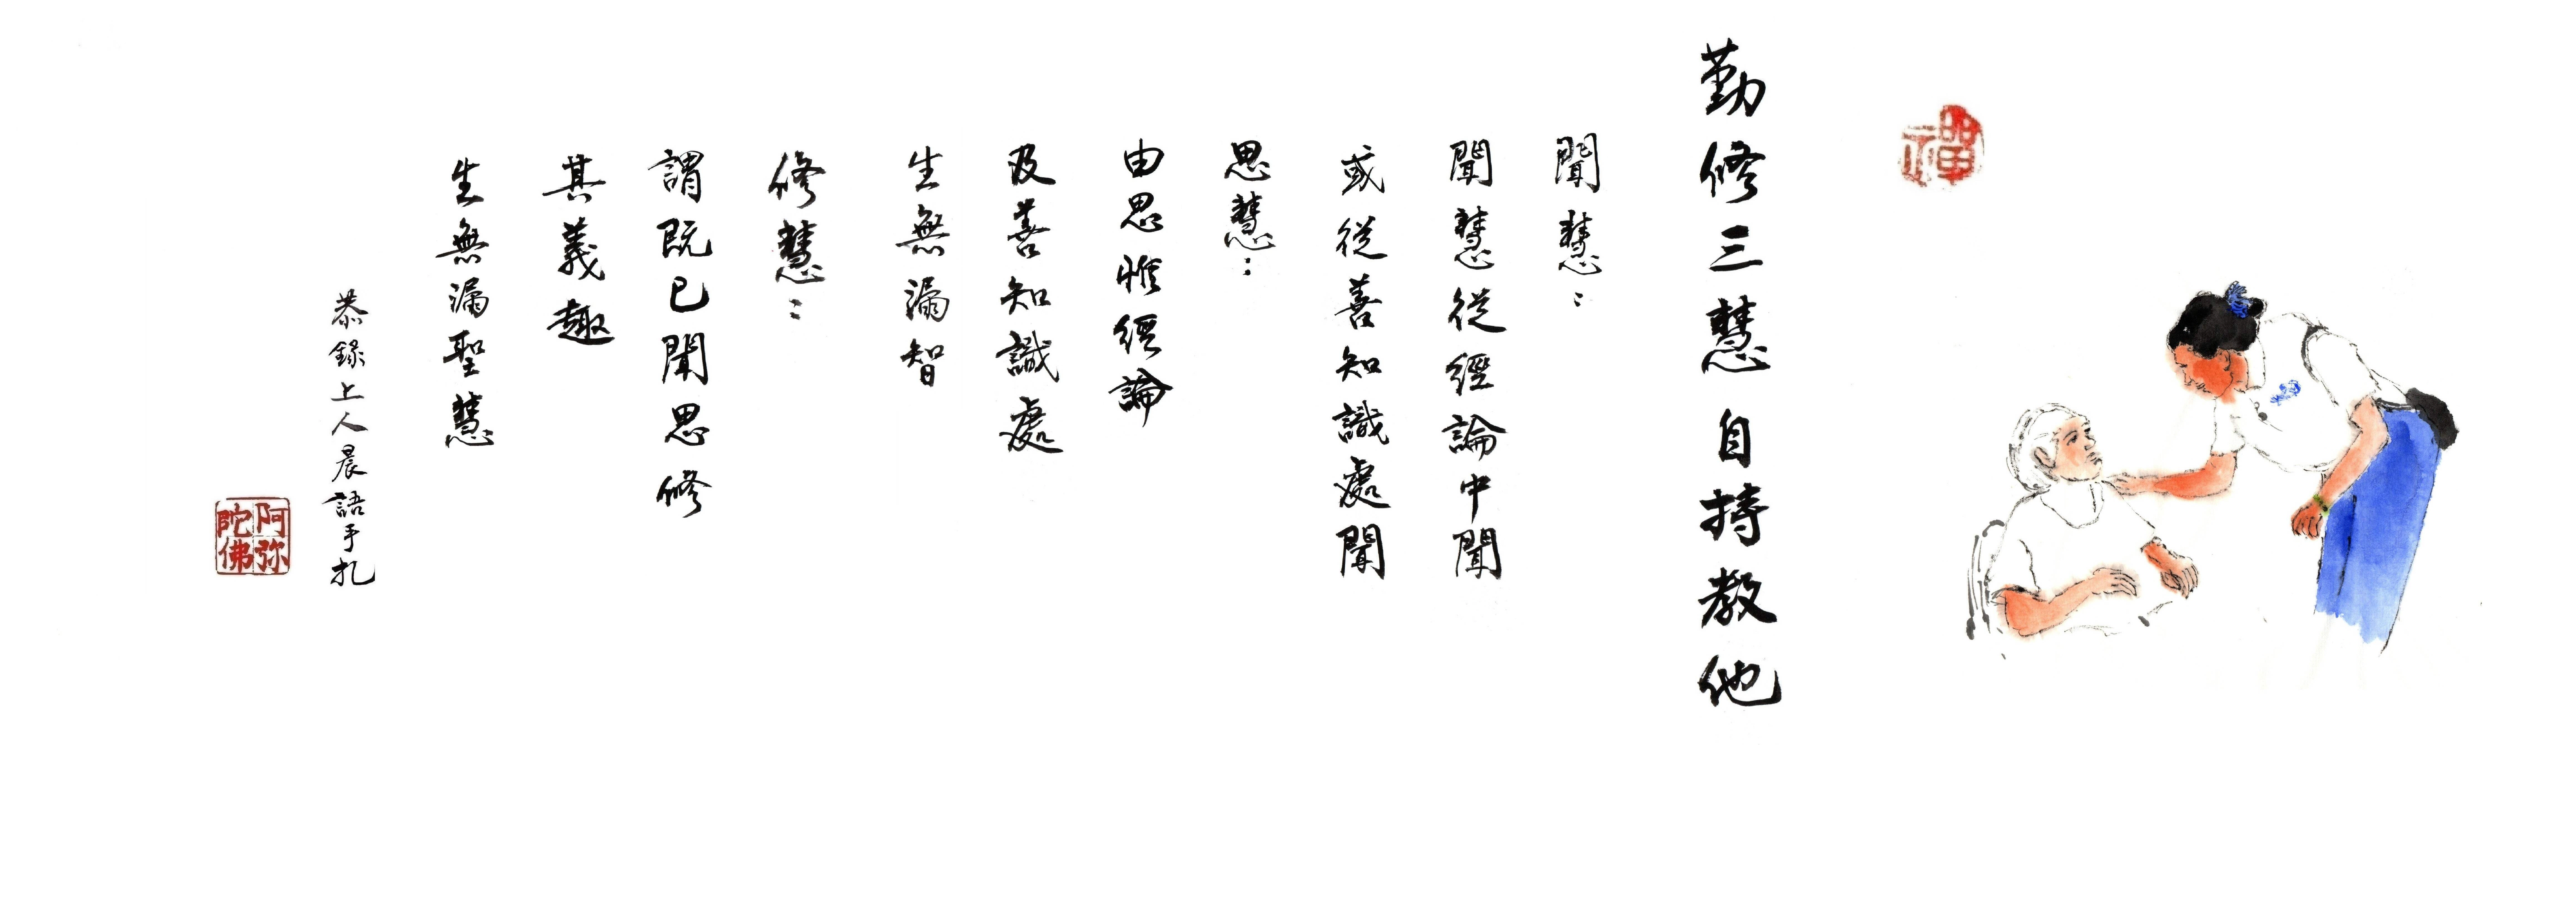 禪
勤修三慧 自持教他
聞慧：
聞慧從經論中聞
或從善知識處聞
思慧：
由思惟經論
及善知識處
生無漏智
修慧：
謂既已聞思修
其義趣
生無漏聖慧
恭錄上人晨語手札
阿弥陀佛